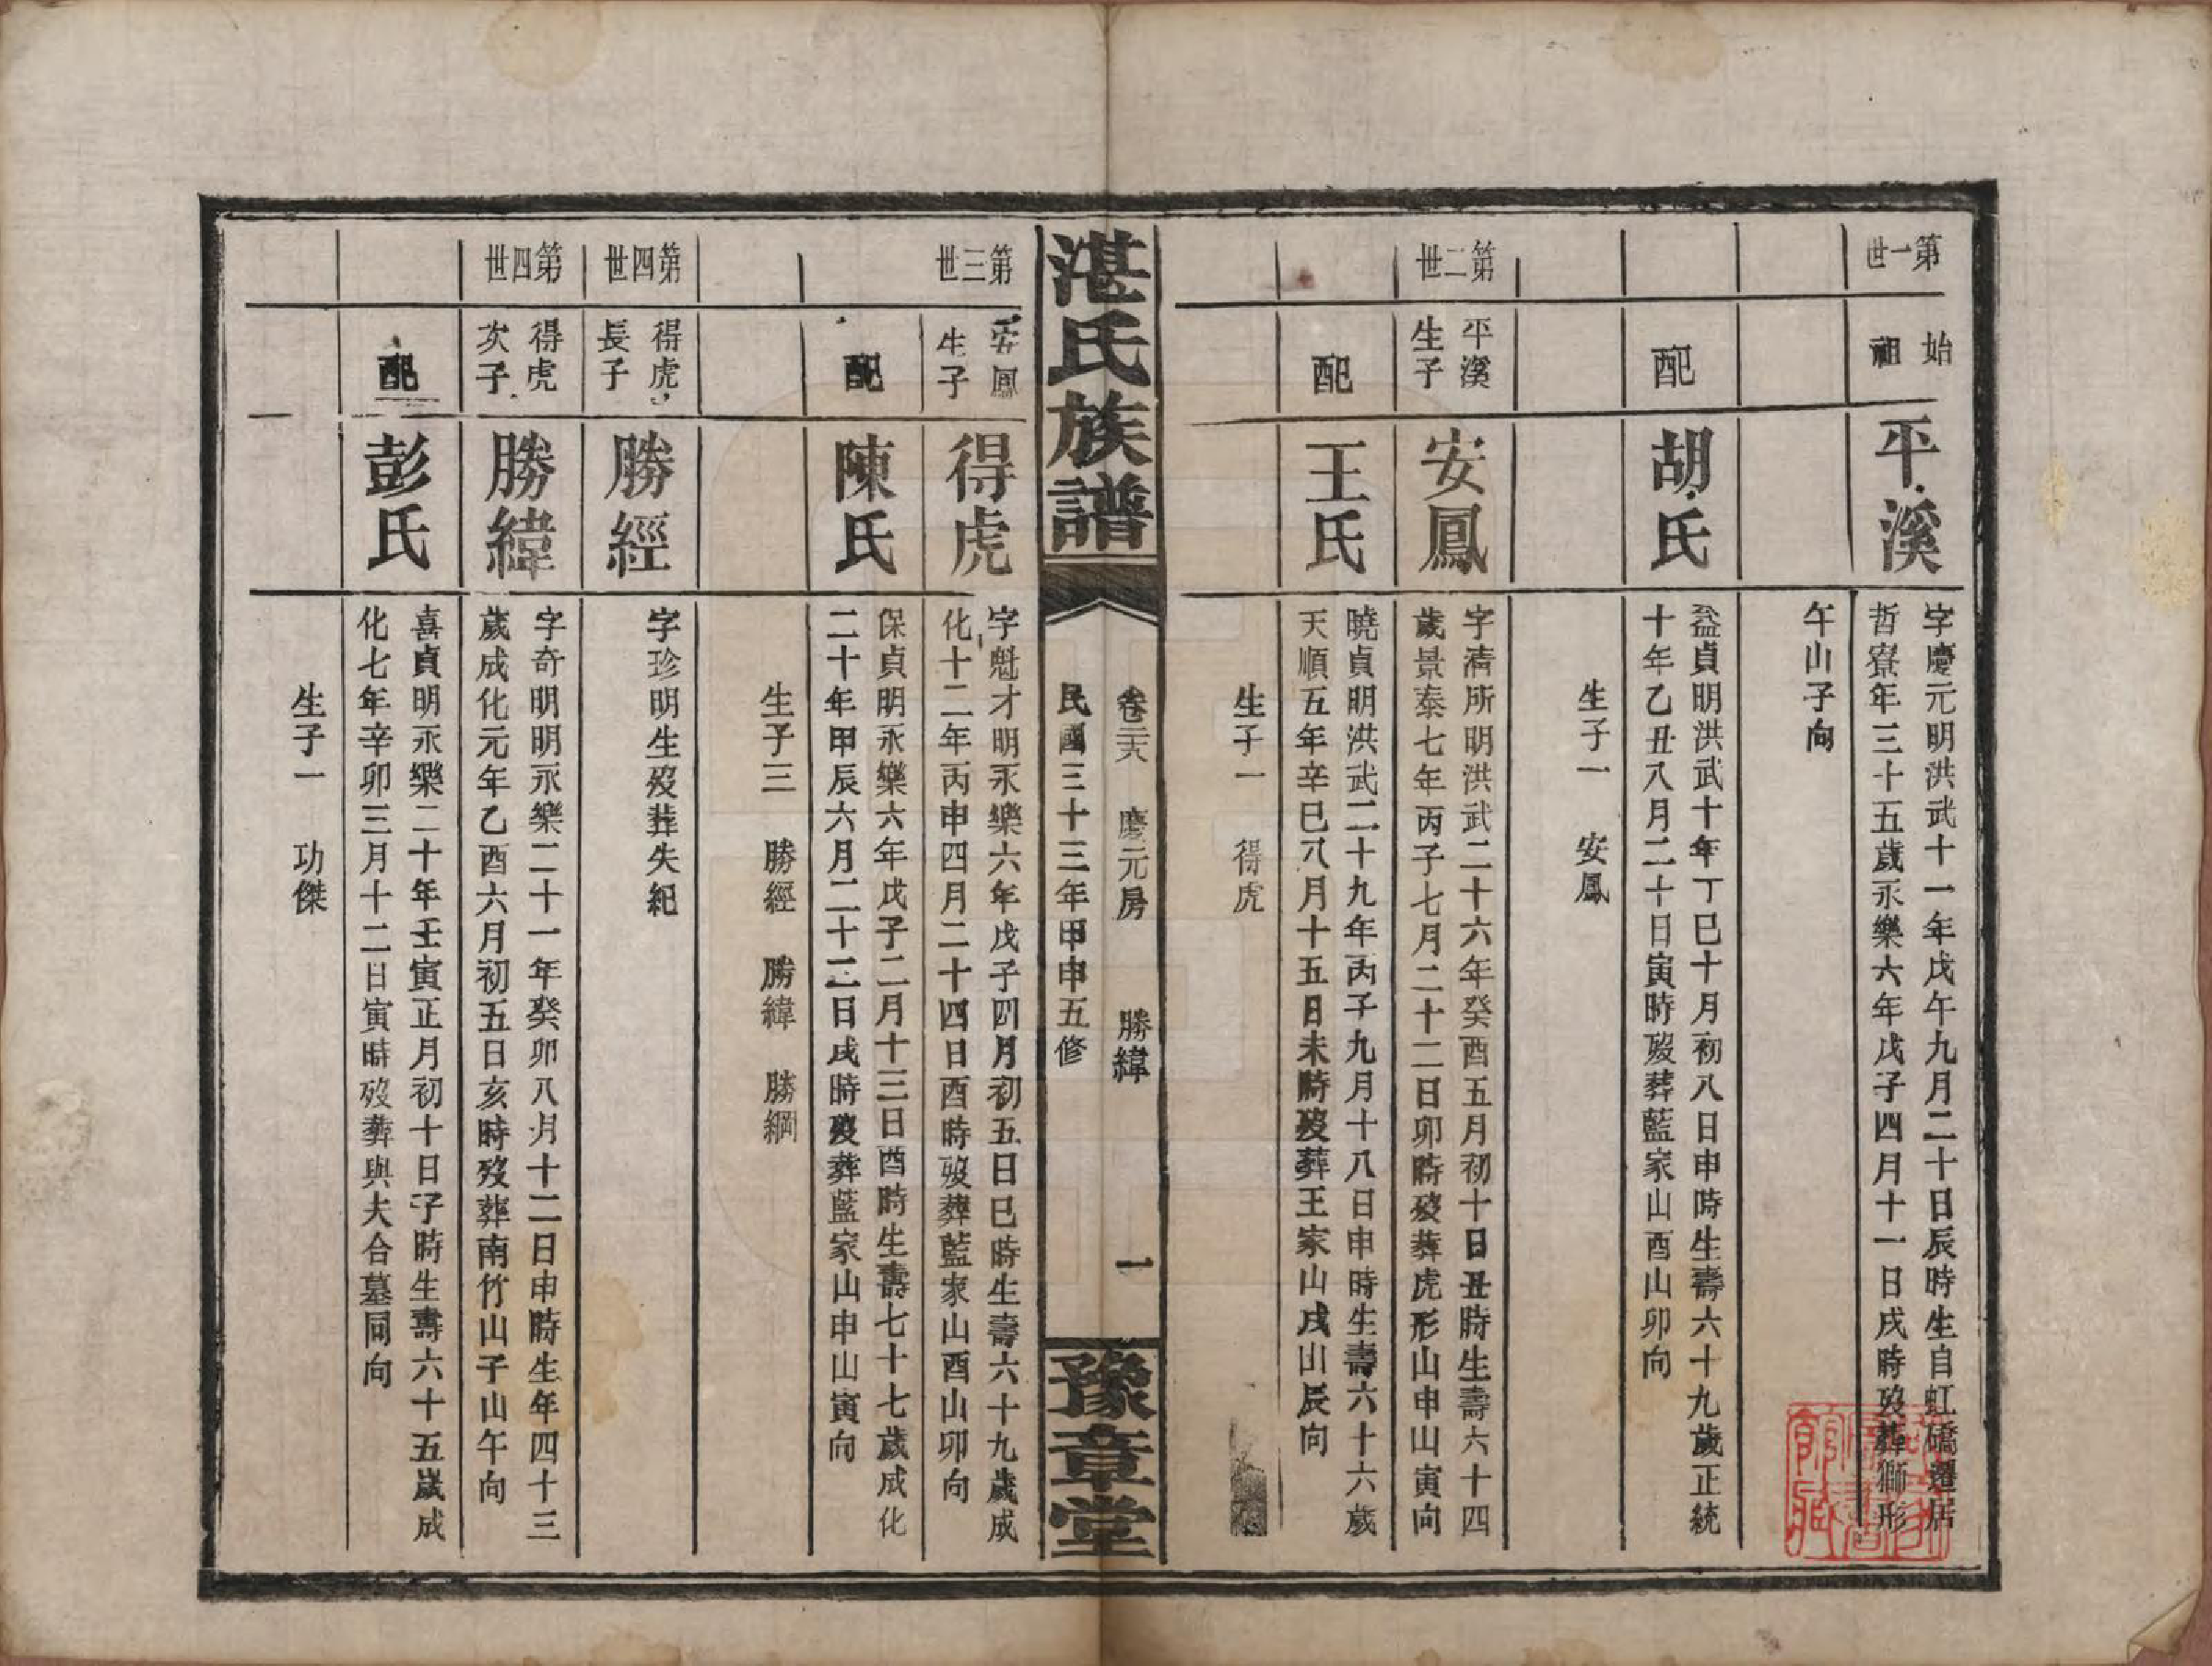 第一世
始祖
平溪
字慶元明洪武十一年戊午九月二十日辰時生自虹橋遷居
哲寮年三十五歲永樂六年戊子四月十一日戌時歿葬獅形
午山子向
配
胡氏
益貞明洪武十年丁巳十月初八日申時生壽六十九歲正統
十年乙丑八月二十日寅時歿葬藍家山酉山卯向
生子一 安鳳
第二世
平溪
生子
安鳳
字濟所明洪武二十六年癸酉五月初十日丑時生壽六十四
歲景泰七年丙子七月二十二日卯時歿葬虎形山申山寅向
配
王氏
曉貞明洪武二十九年丙子九月十八日申時生壽六十六歲
天順五年辛巳八月十五日未時歿葬王家山戌山辰向
生子一 得虎
湛氏族譜
卷三六 慶元房 勝緯 一
民國三十三年甲申五修
豫章堂
第三世
安鳳
生子
得虎
字魁才明永樂六年戊子四月初五日巳時生壽六十九歲成
化十二年丙申四月二十四日酉時歿葬藍家山酉山卯向
配
陳氏
保貞明永樂六年戊子二月十三日酉時生壽七十七歲成化
二十年甲辰六月二十二日戌時歿葬藍家山申山寅向
生子三 勝經 勝緯 勝綱
第四世
得虎
長子
勝經
字珍明生歿葬失紀
第四世
得虎
次子
勝緯
字奇明明永樂二十一年癸卯八月十二日申時生年四十三
歲成化元年乙酉六月初五日亥時歿葬南竹山子山午向
配
彭氏
喜貞明永樂二十年壬寅正月初十日子時生壽六十五歲成
化七年辛卯三月十二日寅時歿葬與夫合墓同向
生子一 功傑